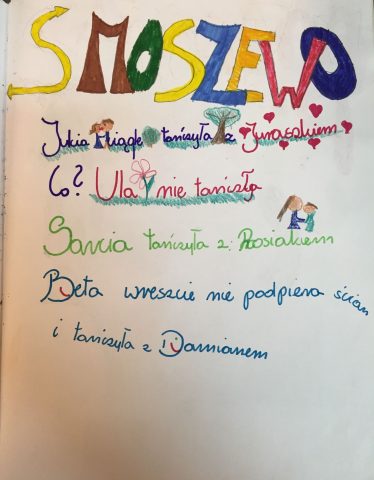 SMOSZEWO
Julia ciągle tańczyła z Jurasakiem
Co? Ula nie tańczyła
Sarcia tańczyła z Rosiakiem
Beta wreszcie nie podpiera ścian
i tańczyła z Damianem